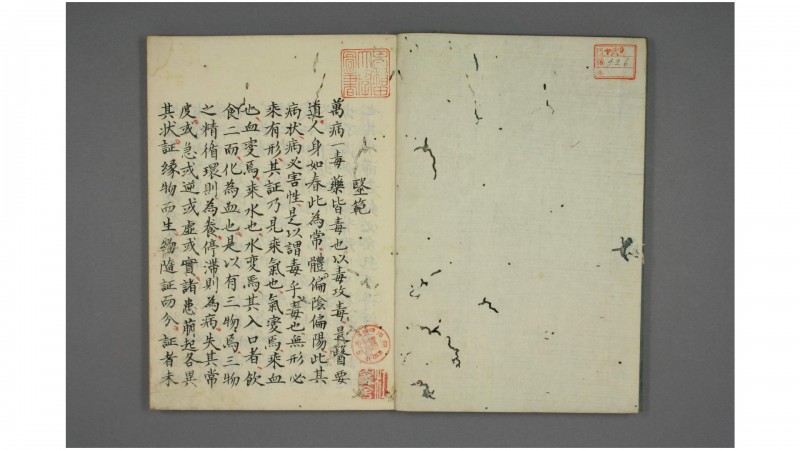 醫範
萬病一毒藥皆毒也以毒攻毒是醫要
道人身如春此為常體偏陰偏陽此其
病状病必害性是以謂毒乎毒也無形必
乘有形其証乃見乘氣也氣變焉乘血
也血變焉乘水也水變焉其入口者飲
食二而化為血也是以有三物焉三物
之精循環則為養停滞則為病失其常
度或急或逆或虚或實諸患萠起各異
其状証縁物而生物隨証而分証者末
126